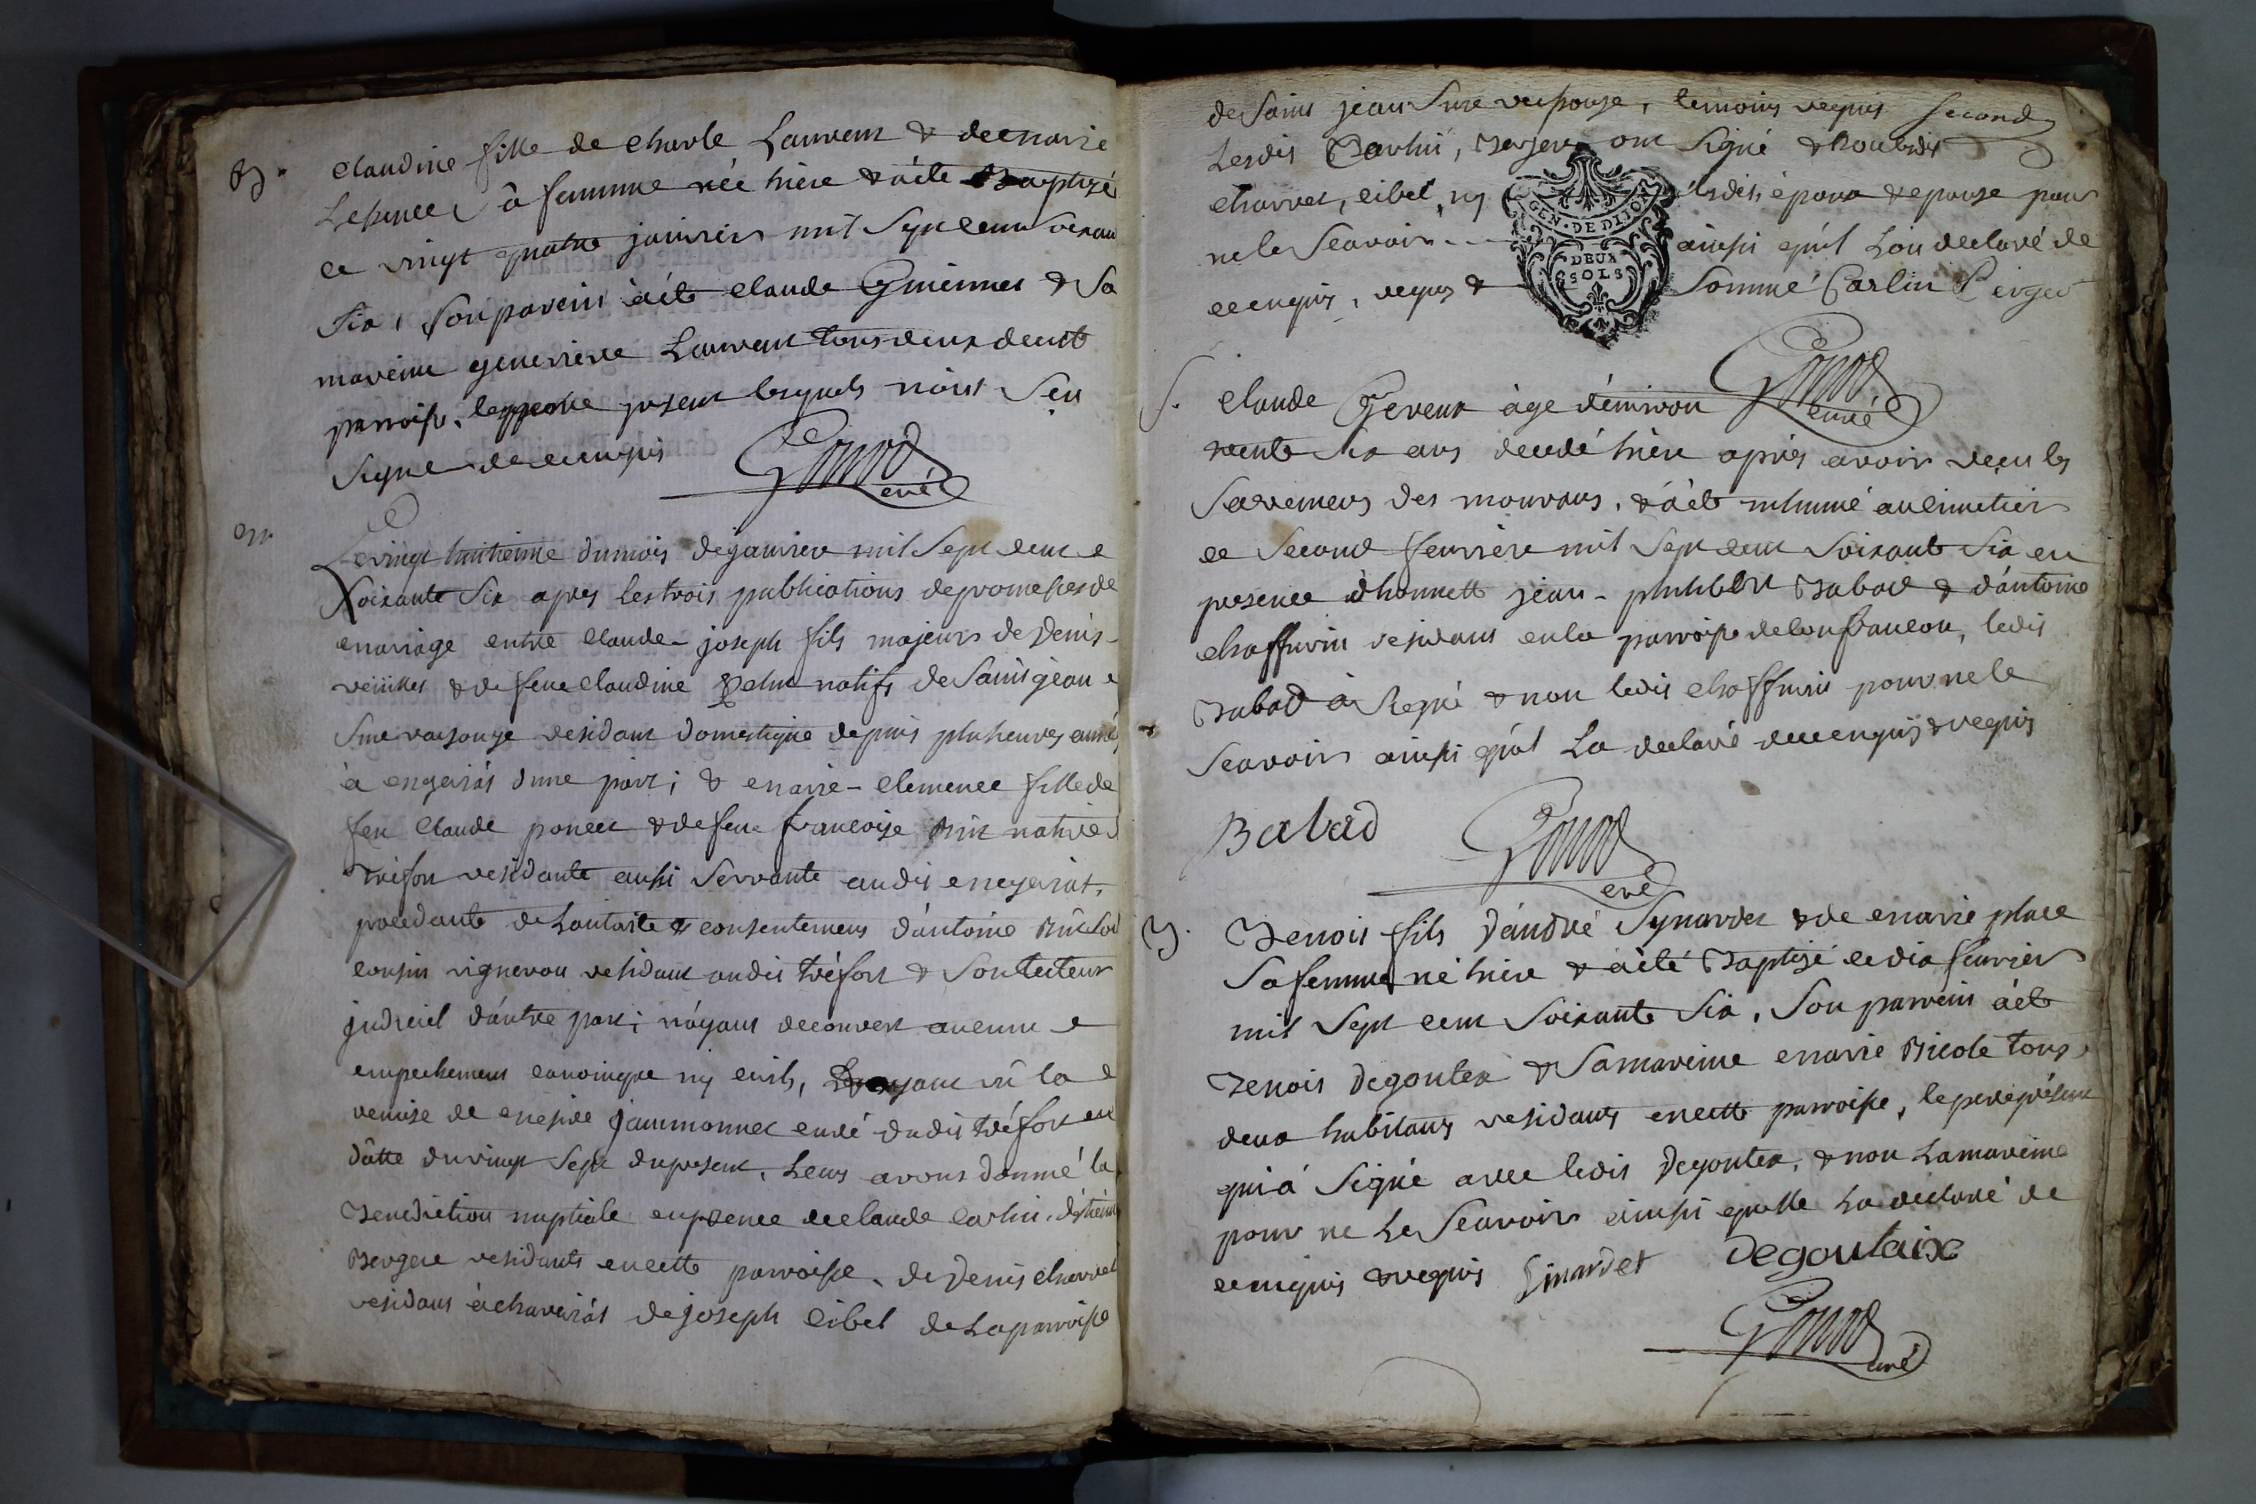 B.
Claudine fille de Charle Laurent & de marie
sa femme née hière & àété Baptizé
ce vingt quatre janvier mil Sept cent soixan
Six, son parein àété Claude & Sa
mareine genevieve Laurent tous deux de cette
parroisse, le present lesquels n'ont Sçu
Signe de ce enquis
Gonod
curé
m.
Le vingt huitieme du mois de janvier mil Sept cent
soixante Six apres les trois publications de promesses de
mariage entre Claude-joseph fils majeur de Denis
& de feue Claudine natifs de Saint jean
Sure residant domestique depuis plusieures années
à d'une part; & marie-Clemence fille de
feu Claude poncet & de feue francoise native
Tréfort residante aussi Servante audit
procedante de Lautorité & consentement d'antoine
cousin vigneron residant audit tréfort & Son tuteur
judiciel d'autre part; n'ayant decouvert aucune
empechement canonique ny civil, ayant vû la
remise de messire jaumonnet curé dudit tréfort en
dâtte du vingt Sept du present, Leurs avons donné la
Benediction nuptiale en presence de claude Carlin,
Bergere residants en cette parroisse, de Denis charvet
residant à de joseph Cibel de La parroisse
de Saint jean Sure temoins requis second
Lesdits Carlin, Berger ont Signé & non
charvet, Cibel, ny lesdits époux & epouse pour
ne le Scavoir ainsi qu'il L'on declaré de
ce enquis, requis & Sommé Carlin Berger
GEN · DE DIJON
DEUX
SOLS
Gonod
curé
S.
Claude âge d'environ
trente Six ans decedé hière après avoir reçu les
Sacremens des mourans, & àété inhumé au cimetier
ce Second feuvrière mil Sept cent soixante Six en
presence d'honnette jean-philibert Babad & d'antoine
Chaffurin residans en la parroisse de Confrancon, ledit
Babad à Signé & non ledit Chaffurin pour ne le
Scavoir ainsi qu'il La declaré de ce enquis & requis
Babad
Gonod
curé
B.
Benois fils D'andré Synardet & de marie place
Sa femme né hière & àété Baptizé ce dix feuvrier
mil Sept cent Soixante Six, Son parrein àété
Benois Degoutex & Sa mareine marie Nicole tous
deux habitans residants en cette parroisse, le pere présent
qui à Signé avec ledit Degoutex, & non La mareine
pour ne Le Scavoir ainsi qu'elle La declaré de
ce enquis & requis Sinardet Degoutaix
Gonod
curé